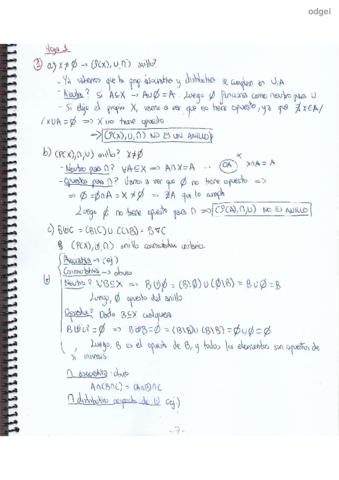 odgei
Hoja 1
③ a) X≠∅ → (P(X), ∪, ∩) anillo?
- Ya sabemos que la prop asociativa y distributiva se cumplen en ∪, ∩.
- Neutro? Si A⊆X → A∪∅=A. Luego ∅ funciona como neutro para ∪
- Si elijo el propio X, vamos a ver que no tiene opuesto, ya que ∄
/ X∪A=∅ => X no tiene opuesto
→ (P(X),∪,∩) NO ES UN ANILLO
b) (P(X),∩,∪) anillo? X≠∅
- Neutro para ∩? ∀A⊆X => A∩X=A X∩A=A
- Opuestos para ∩? Vamos a ver que ∅ no tiene opuesto =>
=> ∅=∅∩A = X ≠∅ => ∄A que lo cumpla
Luego ∅ no tiene opuesto para ∩ => (P(X),∩,∪) NO ES ANILLO
c) B⊎C = (B\C)∪(C\B) = B▽C
(P(X),⊎,∩) anillo conmutativo unitario
Asociativa → (ej)
Conmutativa → obvio
⊎ Neutro? ∀B⊆X => B⊎∅ = (B\∅)∪(∅\B) = B∪∅ = B
Luego, ∅ opuesto del anillo
Opuestos? Dado B⊆X cualquiera
B⊎¿?=∅ => B⊎B=∅ = (B\B)∪(B\B)=∅∪∅=∅
Luego, B es el opuesto de B, y todos los elementos son opuestos de
sí mismos.
∩ asociativa: obvio
A∩(B∩C) = (A∩B)∩C
∩ distributiva respecto de ⊎ (ej)
-7-